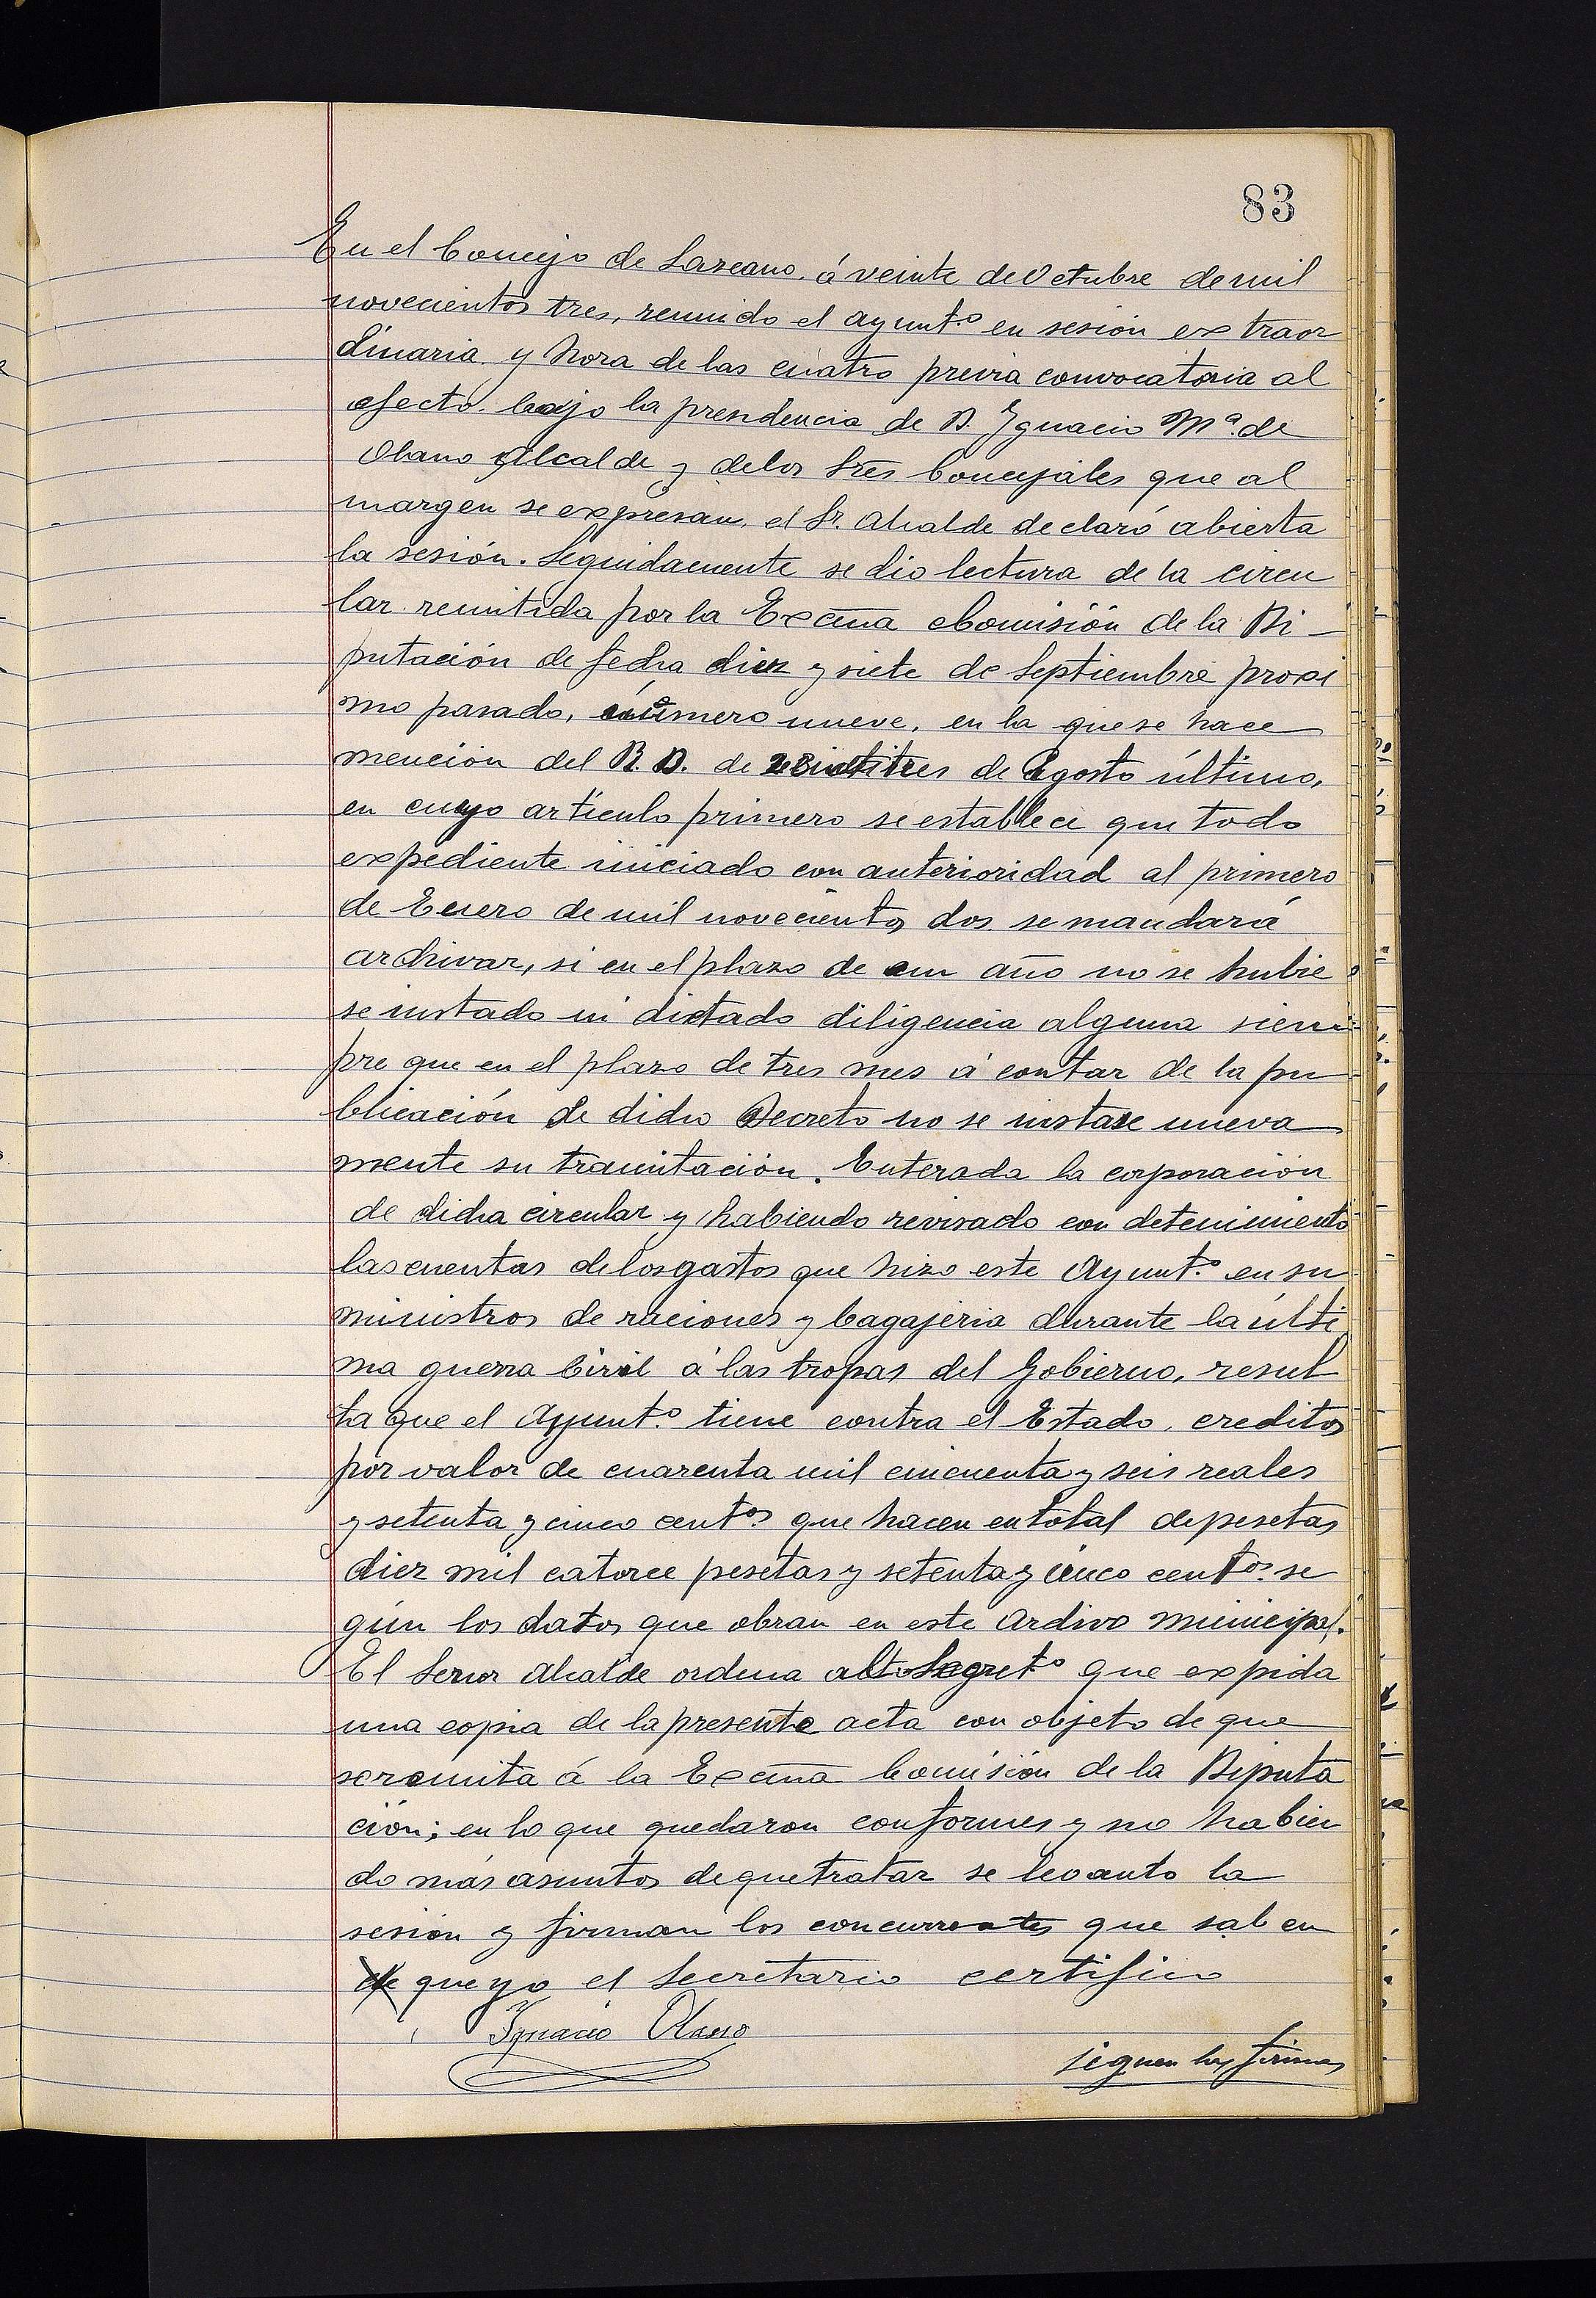 83
En el Concejo de Lazcano á veinte de Octubre de mil
novecientos tres, reunido el ayunt.º en sesión extraor
dinaria y hora de las cuatro previa convocatoria al
efecto. bajo la presidencia de D. Ignacio Mª. de
Olano Alcalde y de los Sres Concejales que al
margen se expresan, el Sr. Alcalde declaró abierta
la sesión. Seguidamente se dio lectura de la circu
lar remitida por la Excma Comisión de la Di-
putación de fecha diez y siete de Septiembre proxi
mo pasado, número nueve, en la que se hace
mención del R. D. de veintitres de Agosto último,
en cuyo artículo primero se establece que todo
expediente iniciado con anterioridad al primero
de Enero de mil novecientos dos se mandará
archivar, si en el plazo de un año no se hubie
se instado ni dictado diligencia alguna siem
pre que en el plazo de tres mes á contar de la pu
blicación de dicho Decreto no se instase nueva
mente su tramitación. Enterada la corporación
de dicha circular y habiendo revisado con detenimiento
las cuentas de los gastos que hizo este Ayunt.º en su
ministros de raciones y bagajeria durante la últi
ma guerra Civil á las tropas del Gobierno, resul
ta que el Ayunt.º tiene contra el Estado, creditos
por valor de cuarenta mil cincuenta y seis reales
y setenta y cinco centos que hacen en total de pesetas
diez mil catorce pesetas y setenta y cinco centos. se
gún los datos que obran en este Ardivo municipal.
El Señor Alcalde ordena al Segretº que expida
una copia de la presente acta con objeto de que
se remita á la Excma Comisión de la Diputa
ción; en lo que quedaron conformes y no habien
do más asuntos de que tratar se levanto la
sesión y firman los concurrentes que saben
de que yo el Secretario certifico
Ignacio Olano
siguen las firmas